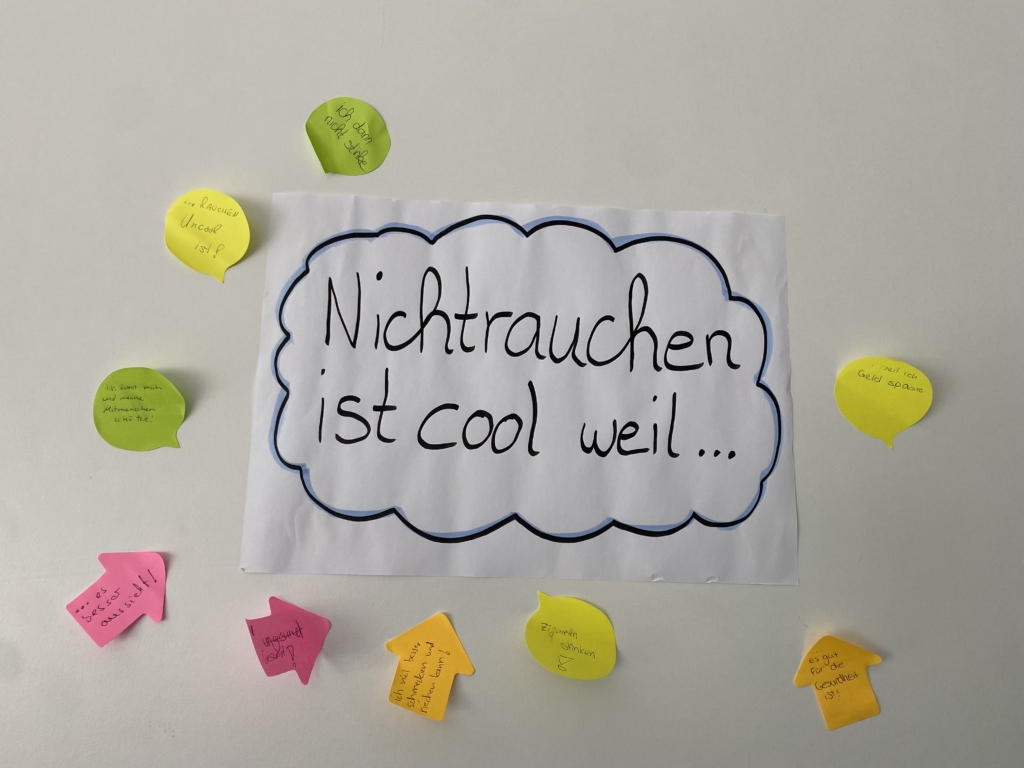 ich dann
nicht stinke
... RAUCHEN
Uncool
ist!
Nichtrauchen
ist cool weil...
Ich damit mich
und meine
Mitmenschen
schütze!
weil ich
Geld spaare
... es
besser
aussieht!
ungesund
ich viel besser
schmecken und
riechen kann!
Zigaretten
stinken
es gut
für die
Gesundheit
ist!!